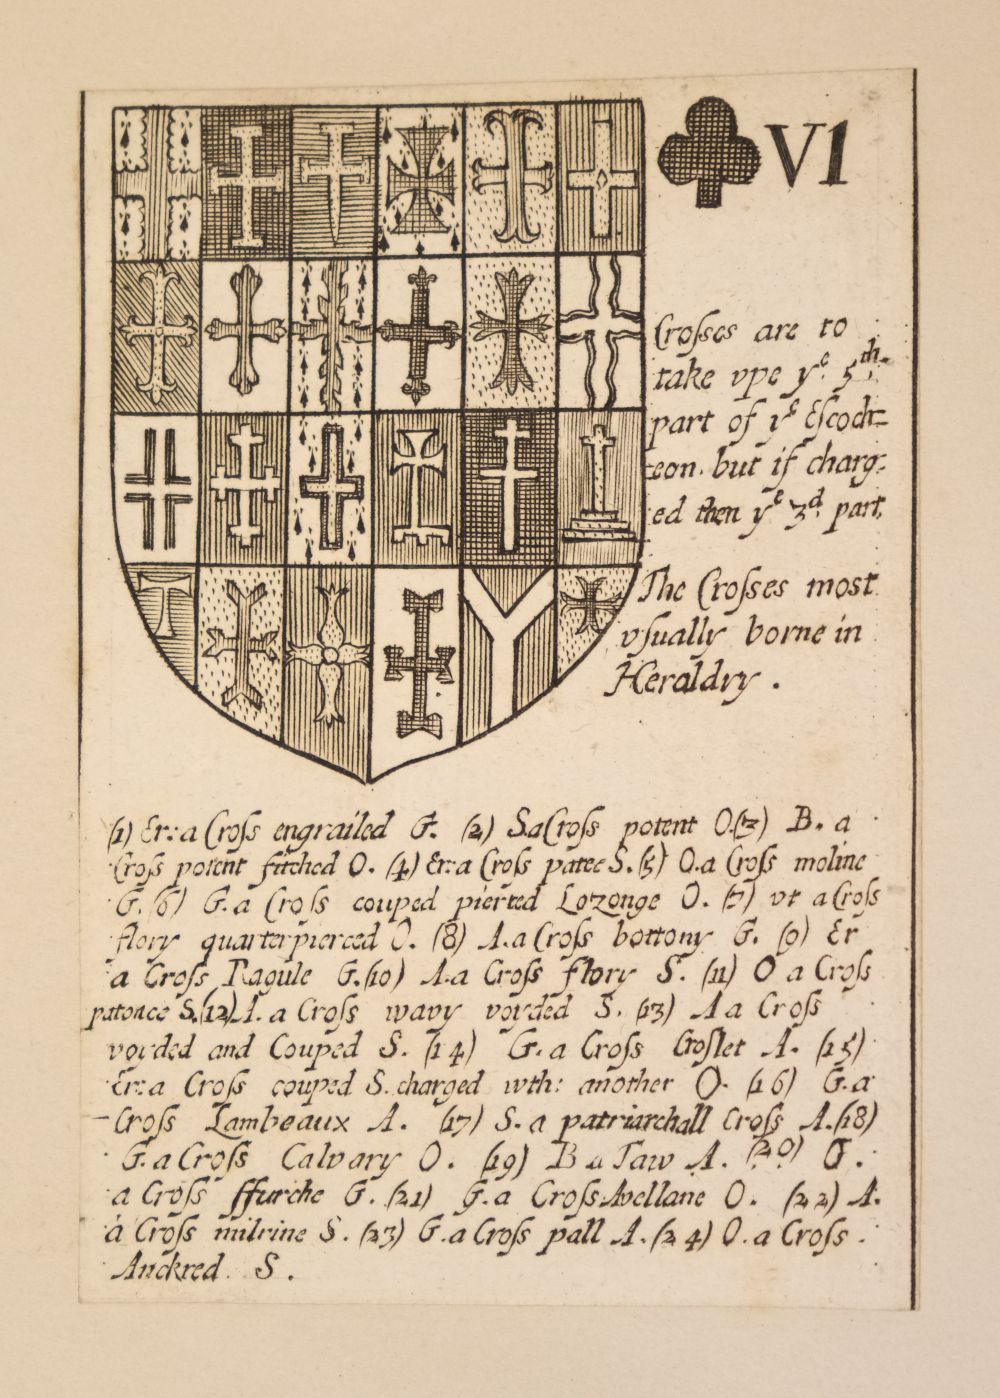 VI
Crosses are to
take vpe yᵉ 5th
part of yᵉ Escoch=
eon. but if charg=
ed then yᵉ 3d part.
The Crosses most
vsually borne in
Heraldry .
(1) Er: a Cross engrailed G. (2) S. a Cross potent O. (3) B. a
Cross potent fitched O. (4) Er: a Cross patee S. (5) O. a Cross moline
G. (6) G. a Cross couped pierted Lozonge O. (7) vt a Cross
flory quarterpierced O. (8) A. a Cross bottony G. (9) Er
a Cross Ragule G. (10) A. a Cross flory S. (11) O a Cross
patonce S. (12) A. a Cross wavy voyded S. (13) A a Cross
voyded and Couped S. (14) G. a Cross Croslet A. (15)
Er: a Cross couped S. charged wth: another O. (16) G. a
Cross Lambeaux A. (17) S. a patriarchall Cross A. (18)
G. a Cross Calvary O. (19) B a Taw A. (20) O.
a Cross ffurche G. (21) G. a Cross Avellane O. (22) A.
a Cross milrine S. (23) G. a Cross pall A. (24) O. a Cross.
Anckred S.